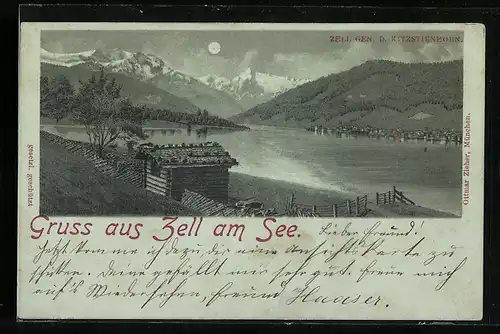 ZELL GEN. D. KITZSTEINHORN.
gesetzl. geschützt
Ottmar Zieher, München.
Gruss aus Zell am See.
Lieber Freund!
Jetzt komme ich dazu dir eine Ansichtskarte zu
schicken. Deine gefällt mir sehr gut. Freue mich
auf's Wiedersehen,